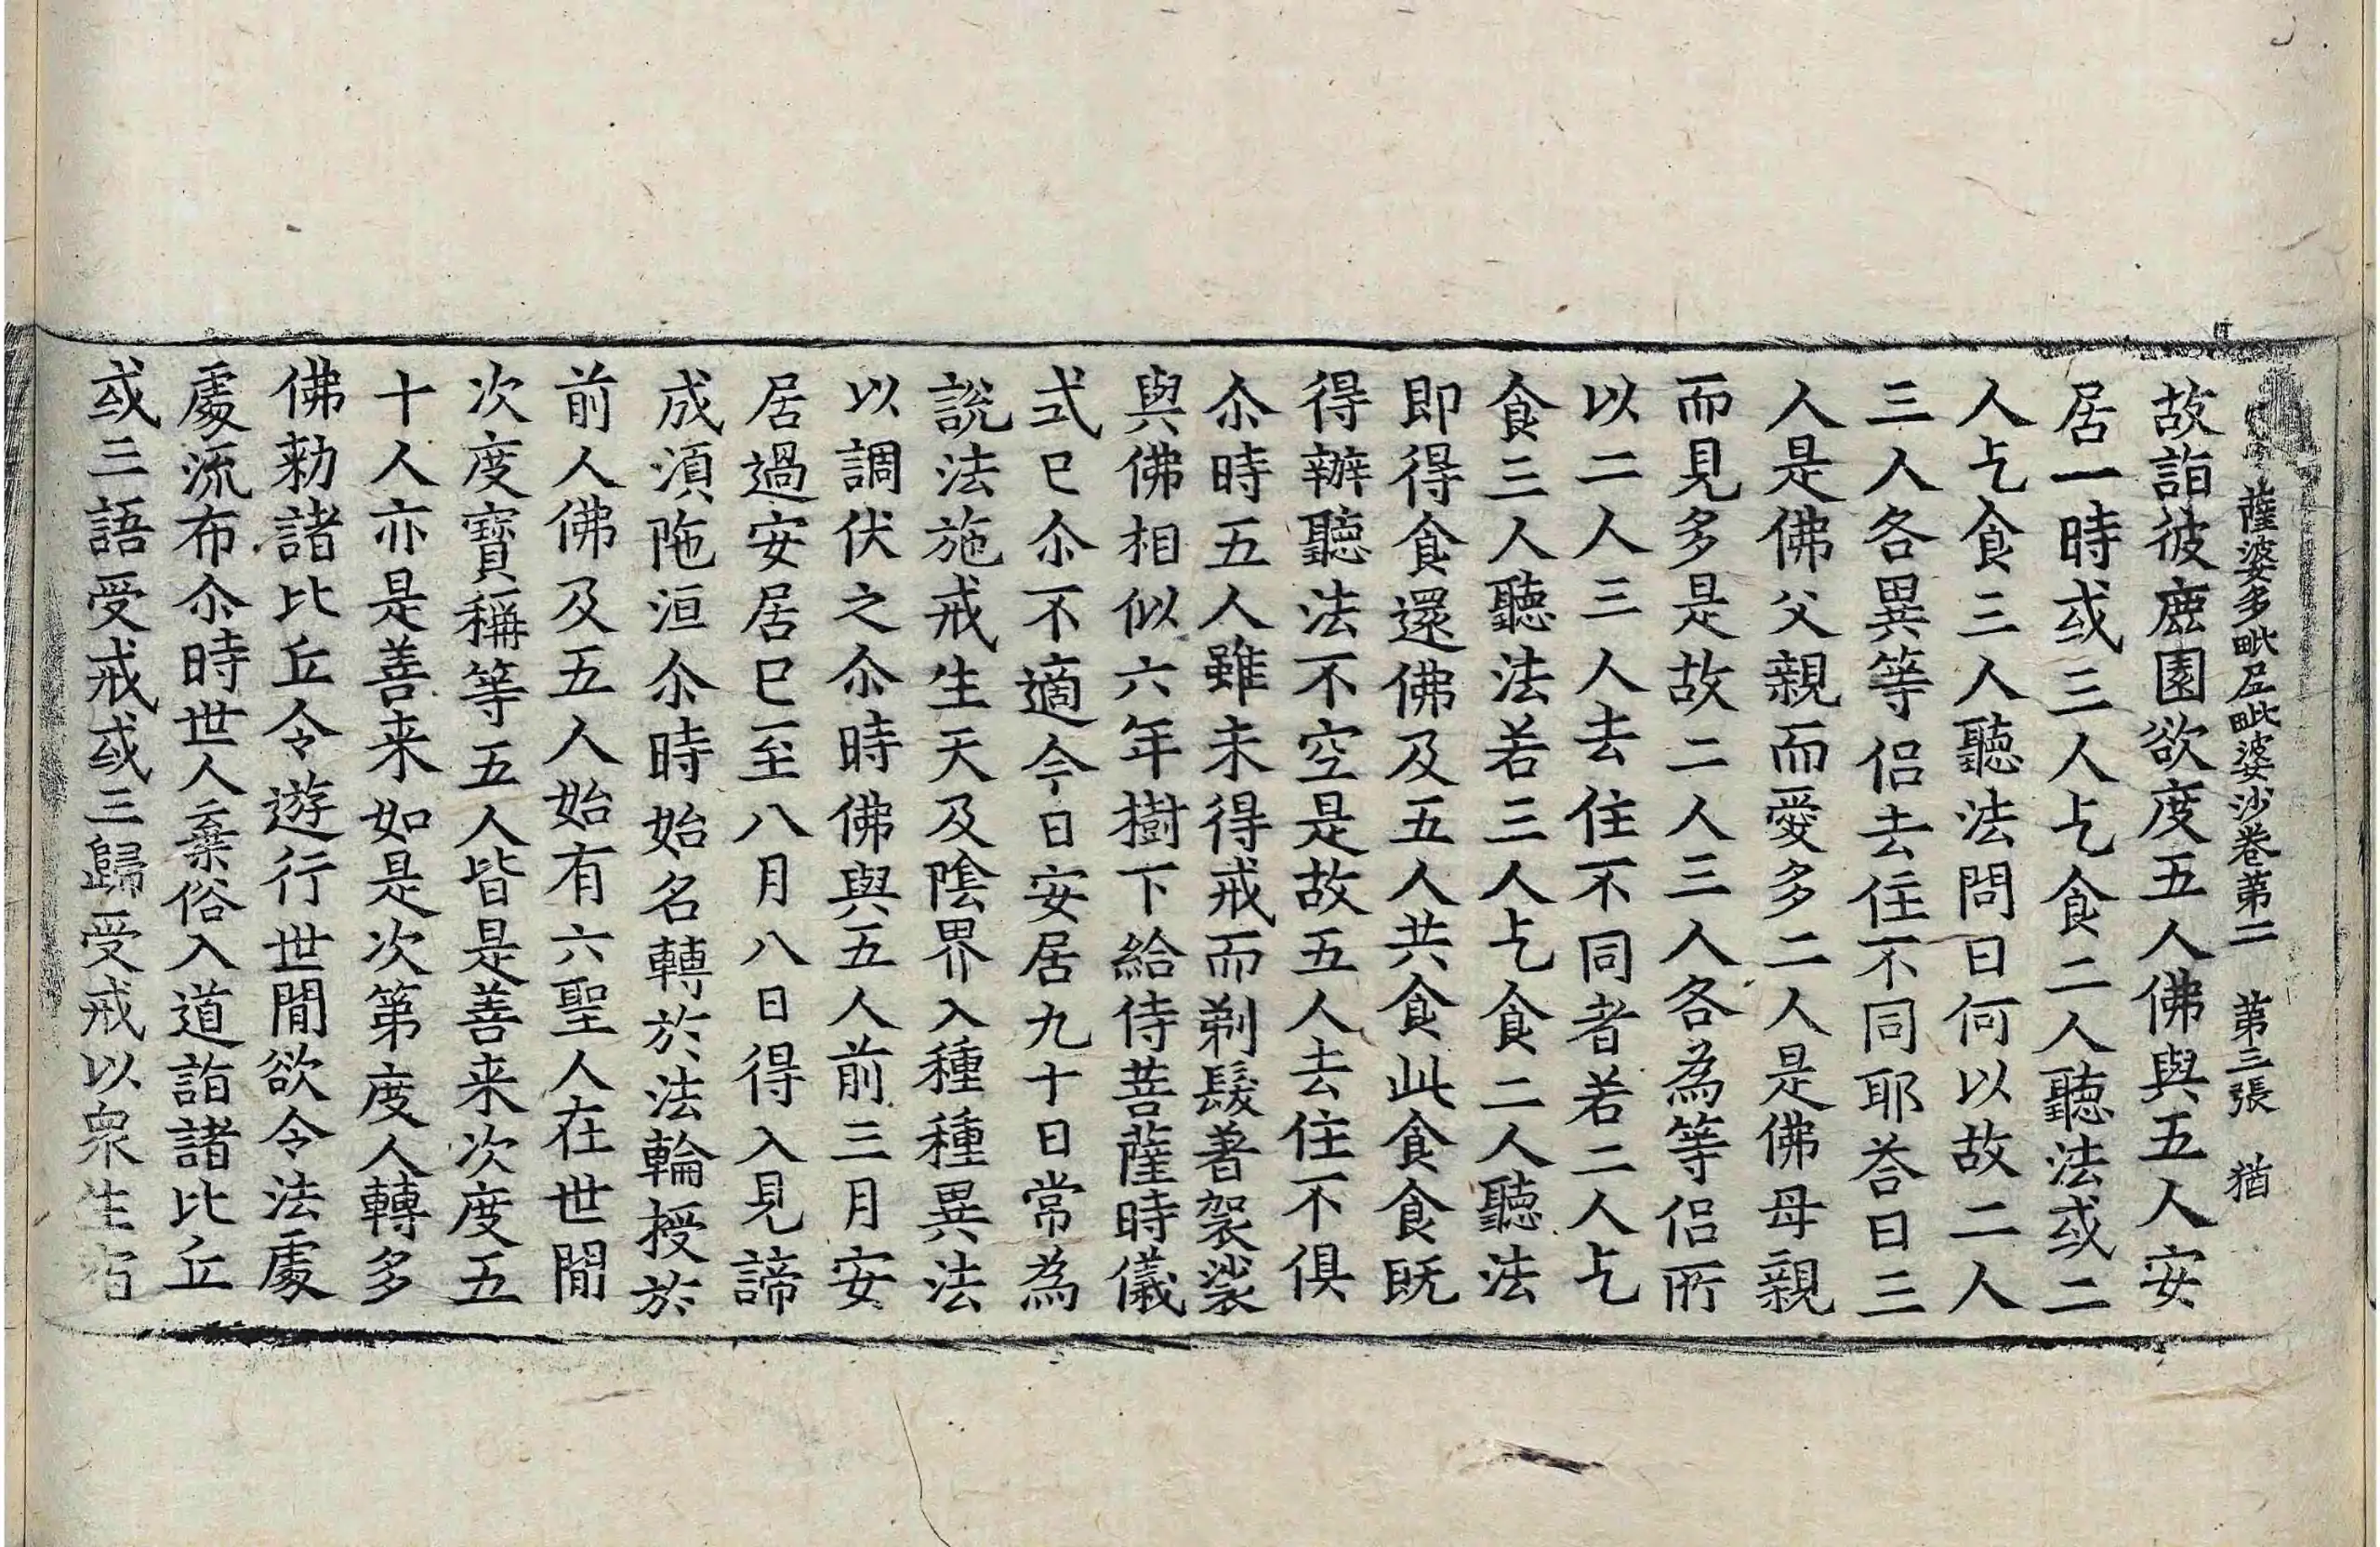 薩婆多毗尼毗婆沙卷第二　第三張　猶
故詣彼鹿園欲度五人佛與五人安
居一時或三人乞食二人聽法或二
人乞食三人聽法問曰何以故二人
三人各異等侶去住不同耶荅曰三
人是佛父親而愛多二人是佛母親
而見多是故二人三人各為等侶所
以二人三人去住不同者若二人乞
食三人聽法若三人乞食二人聽法
即得食還佛及五人共食此食食既
得辦聽法不空是故五人去住不俱
尒時五人雖未得戒而剃髮著袈裟
與佛相似六年樹下給侍菩薩時儀
式已尒不適今日安居九十日常為
說法施戒生天及陰界入種種異法
以調伏之尒時佛與五人前三月安
居過安居已至八月八日得入見諦
成湏陁洹尒時始名轉於法輪授於
前人佛及五人始有六聖人在世閒
次度寶稱等五人皆是善来次度五
十人亦是善来如是次第度人轉多
佛勑諸比丘令遊行世閒欲令法處
處流布尒時世人棄俗入道詣諸比丘
或三語受戒或三歸受戒以眾生